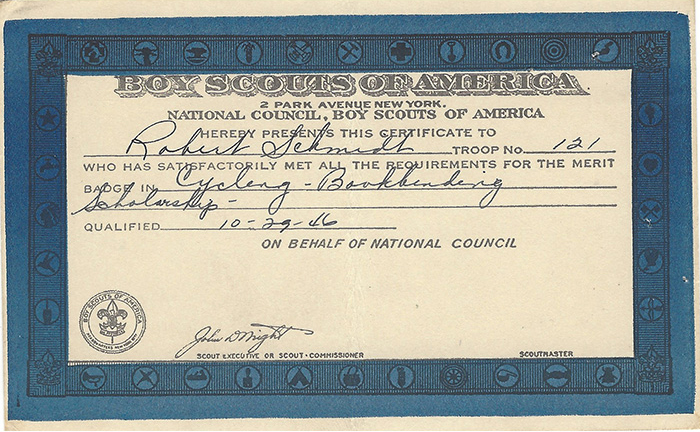 BOY SCOUTS OF AMERICA
2 PARK AVENUE NEW YORK.
NATIONAL COUNCIL, BOY SCOUTS OF AMERICA
HEREBY PRESENTS THIS CERTIFICATE TO
Robert Schmidt TROOP No. 121
WHO HAS SATISFACTORILY MET ALL THE REQUIREMENTS FOR THE MERIT
BADGE IN Cycling - Bookbinding
Scholarship -
QUALIFIED 10-29-46
ON BEHALF OF NATIONAL COUNCIL
BOY SCOUTS OF AMERICA
John D Wright
SCOUT EXECUTIVE OR SCOUT-COMMISSIONER SCOUTMASTER